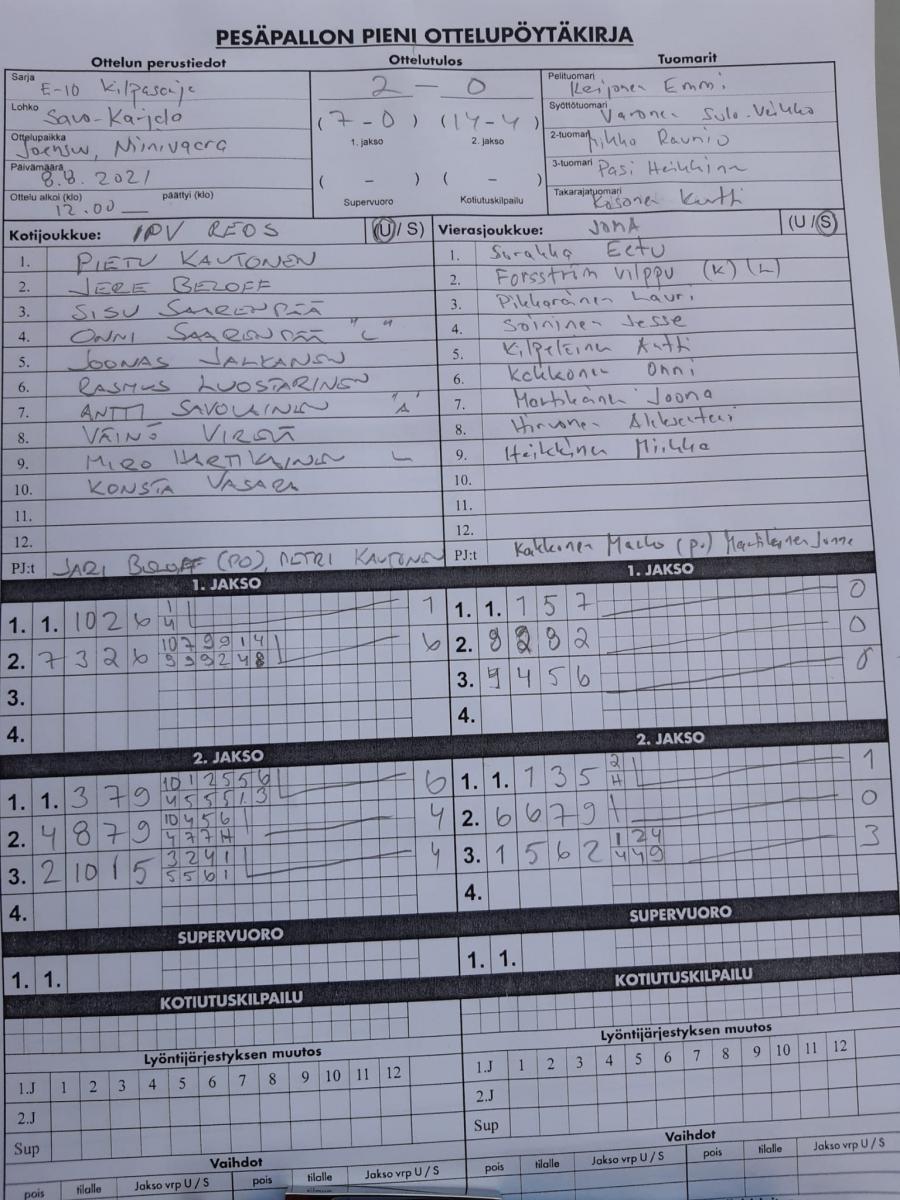 PESÄPALLON PIENI OTTELUPÖYTÄKIRJA
Ottelun perustiedot Ottelutulos Tuomarit
Sarja E-10 Kilpasarja
Lohko Savo-Karjala
Ottelupaikka Joensuu, Niinivaara
Päivämäärä 8.8. 2021
Ottelu alkoi (klo) päättyi (klo)
12.00
2 — 0
(7-0) (14-4)
1. jakso 2. jakso
( - ) ( - )
Supervuoro Kotiutuskilpailu
Pelituomari Keijonen Emmi
Syöttötuomari Varonen Sulo-Veikko
2-tuomari Mikko Raunio
3-tuomari Pasi Heikkinen
Takarajatuomari Kosonen Kertti
Kotijoukkue: IPV REDS (U/S)
1. PIETU KAUTONEN
2. JERE BELOFF
3. SISU SAARENPÄÄ
4. ONNI SAARENPÄÄ "L"
5. JOONAS JALKANEN
6. RASMUS LUOSTARINEN
7. ANTTI SAVOLAINEN "A"
8. VÄINÖ
9. MIRO HARTIKAINEN L
10. KONSTA VASARA
11.
12.
PJ:t JARI BELOFF (PO), PETRI KAUTONEN
Vierasjoukkue: JomA (U/S)
1. Surakka Eetu
2. Forsström Vilppu (K) (L)
3. Pikkarainen Lauri
4. Soininen Jesse
5. Kilpeläinen Antti
6. Kokkonen Onni
7. Martikainen Joona
8. Hirvonen Aleksanteri
9. Heikkinen Miikka
10.
11.
12.
PJ:t Kokkonen Marko (p.) Martikainen Jonne
1. JAKSO
1. 1. 10 2 6 1 1
4
2. 7 3 2 6 10 7 9 9 1 4 6
9 9 9 2 4 8
3.
4.
1. JAKSO
1. 1. 1 5 7 0
2. 8 2 8 2 0
3. 9 4 5 6 0
4.
2. JAKSO
1. 1. 3 7 9 10 1 2 5 5 6 6
4 5 5 5 1 3
2. 4 8 7 9 10 4 5 6 4
4 7 7 H
3. 2 10 1 5 3 2 4 1 4
5 5 6 1
4.
2. JAKSO
1. 1. 1 3 5 2 1
H
2. 6 6 7 9 0
3. 1 5 6 2 1 2 4 3
4 4 9
4.
SUPERVUORO SUPERVUORO
1. 1. 1. 1.
KOTIUTUSKILPAILU KOTIUTUSKILPAILU
Lyöntijärjestyksen muutos Lyöntijärjestyksen muutos
1.J 1 2 3 4 5 6 7 8 9 10 11 12 1.J 1 2 3 4 5 6 7 8 9 10 11 12
2.J 2.J
Sup Sup
Vaihdot Vaihdot
pois tilalle Jakso vrp U / S pois tilalle Jakso vrp U / S pois tilalle Jakso vrp U / S pois tilalle Jakso vrp U / S